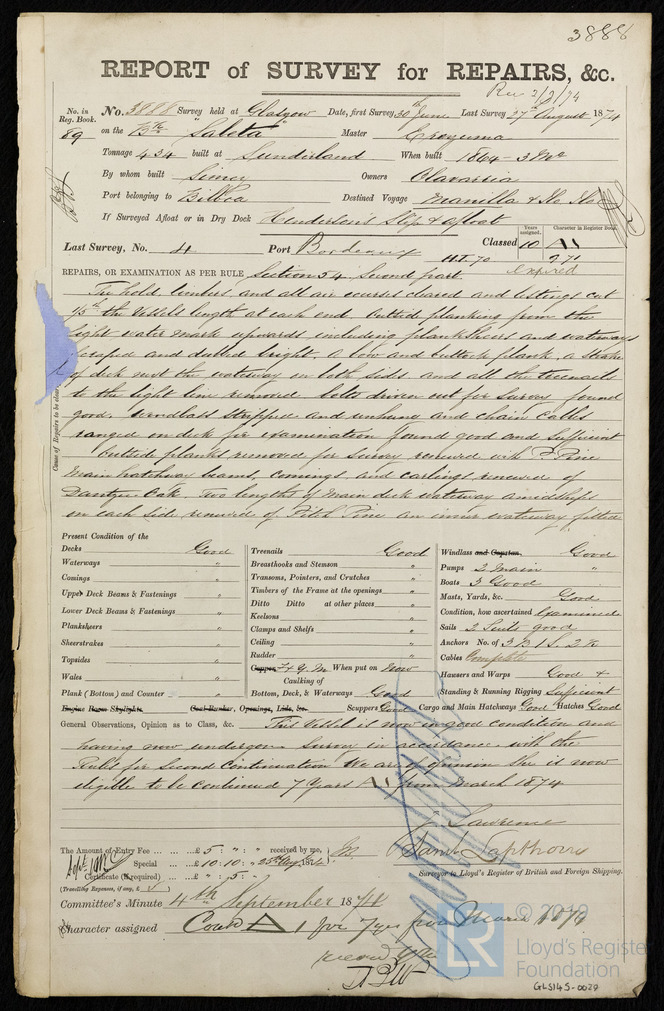 3888
REPORT of SURVEY for REPAIRS, &c.
Rec 2/9/74
No. in Reg. Book. No. 3888 Survey held at Glasgow Date, first Survey 30th June Last Survey 27th August 1874
89 on the "Saleta" Master
Tonnage 434 built at Sunderland When built 1864 - 3 Mo
By whom built Owners
Port belonging to Bilboa Destined Voyage Manilla &
If Surveyed Afloat or in Dry Dock Henderson's Slip & afloat
Years assigned. Character in Register Book.
Last Survey, No. 4 Port Bordeaux Classed 10 A1
11.I.70 9.71
expired
REPAIRS, OR EXAMINATION AS PER RULE Section 54 Second part.
The hold timbers and all air courses cleared and listings cut
1/5th the Vessels length at each end, outside planking from the
light water mark upwards including plank sheers and waterways
scraped and dubbed bright. A bow and buttock plank, a strake
of deck next the waterway on both sides and all the treenails
to the light line removed bolts driven out for survey found
good, windlass stripped and unhung and chain cables
ranged on deck for examination found good and sufficient
Outside planks removed for survey renewed with P. Pine
Main hatchway beams, comings, and carlings renewed of
Dantzic Oak. Two lengths of Main deck waterway amidships
on each side renewed of Pitch Pine an inner waterway fitted
Cause of Repairs to be clear
Present Condition of the
Decks Good Treenails Good Windlass and Capstan. Good
Waterways " Breasthooks and Stemson " Pumps 2 Main "
Comings " Transoms, Pointers, and Crutches " Boats 3 Good
Upper Deck Beams & Fastenings " Timbers of the Frame at the openings " Masts, Yards, &c. Good
Lower Deck Beams & Fastenings " Ditto Ditto at other places " Condition, how ascertained Examined
Planksheers " Keelsons " Sails 2 Suits good
Sheerstrakes " Clamps and Shelfs " Anchors No. of 3 B 1 S. 2 K
Topsides " Ceiling " Cables Complete
Wales " Rudder " Hausers and Warps Good +
Copper F & Y. M When put on Now
Plank (Bottom) and Counter " Caulking of Bottom, Deck, & Waterways Good Standing & Running Rigging Sufficient
Engine Room Skylights Coal-Bunker, Openings, Lids, &c. Scuppers Good Cargo and Main Hatchways Good Hatches Good
General Observations, Opinion as to Class, &c. This Vessel is now in good condition and
having now undergone Survey in accordance with the
Rules for Second Continuation We are of opinion she is now
eligible to be continued 7 Years A1 from March 1874
Lawrence
The Amount of Entry Fee £ 5 : " : " received by me,
Special £ 10: 10: " 25th Aug 1874
Certificate (if required) £ " : 5 : "
(Travelling Expenses, if any, £ )
Saml Lapthorn
Surveyor to Lloyd's Register of British and Foreign Shipping.
Committee's Minute 4th September 1874
Character assigned Contd A 1 for 7 yrs from March 1874
© 2019
LR
Lloyd's Register
Foundation
GLS145-0027